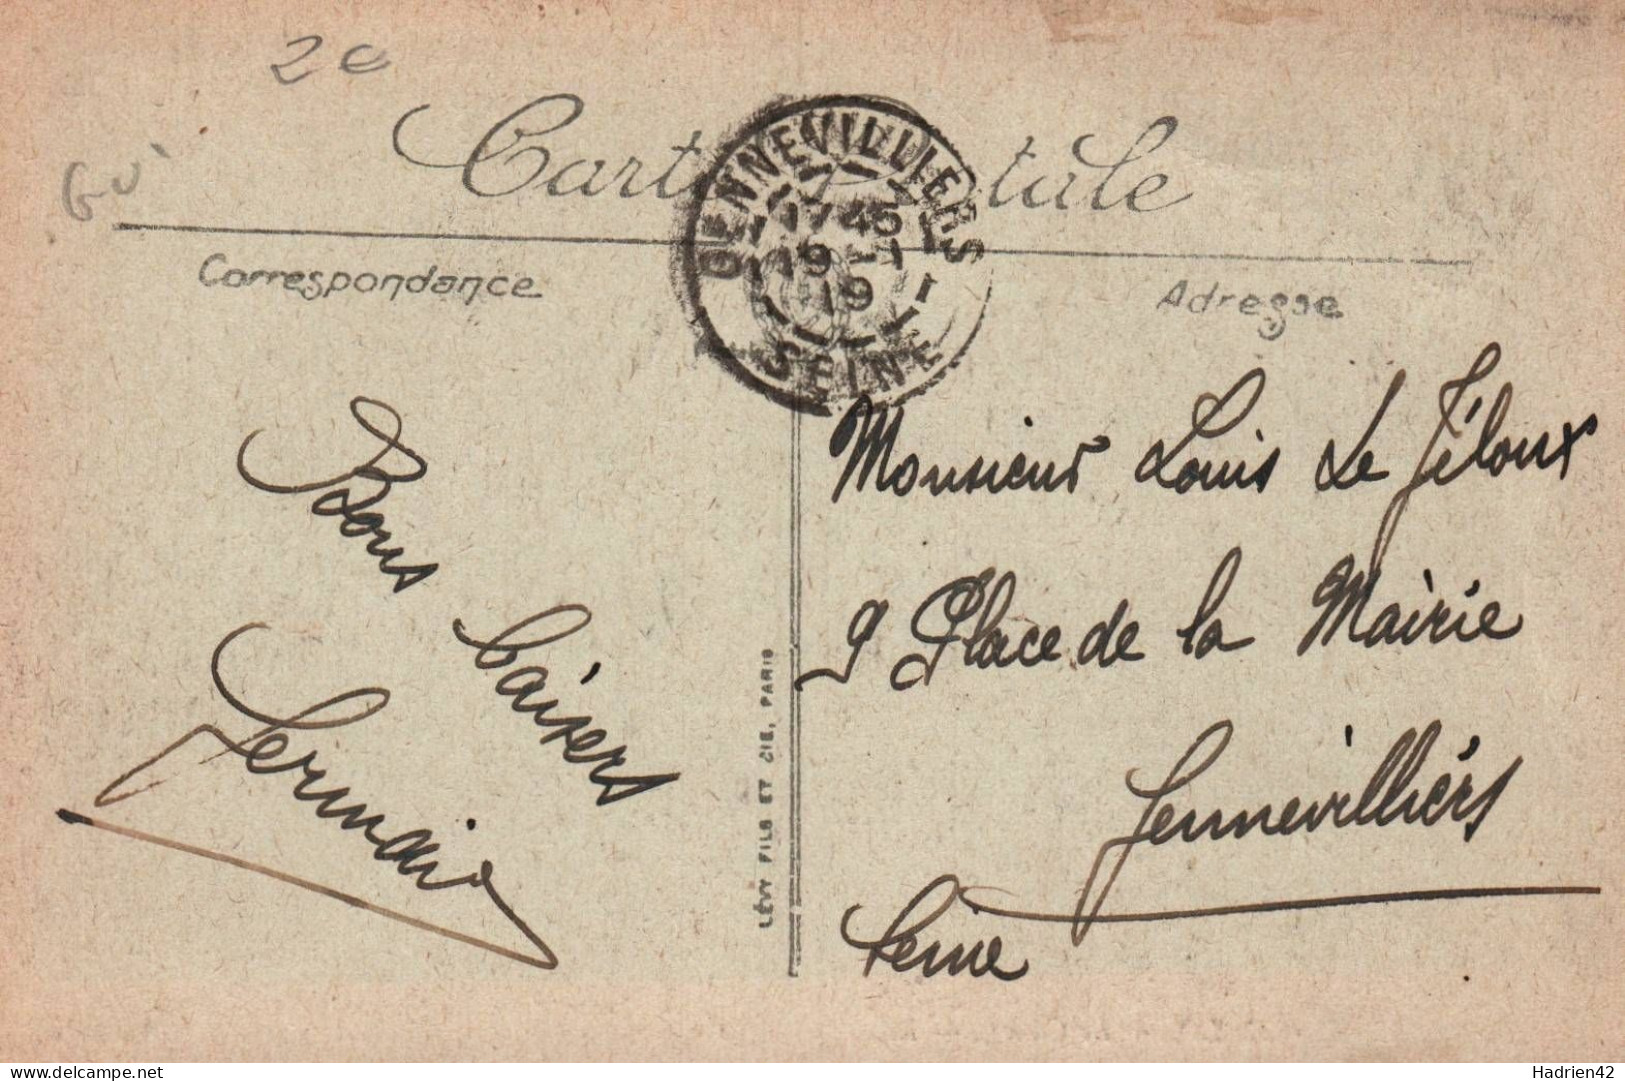 2e
Carte Postale
GENNEVILLIERS
17 45
19 - 1
19
SEINE
Correspondance
Adresse
Bons baisers
Germain
LÉVY FILS ET CIE, PARIS
Monsieur Louis Le Féloux
9 Place de la Mairie
Gennevilliers
Seine
delcampe.net
Hadrien42